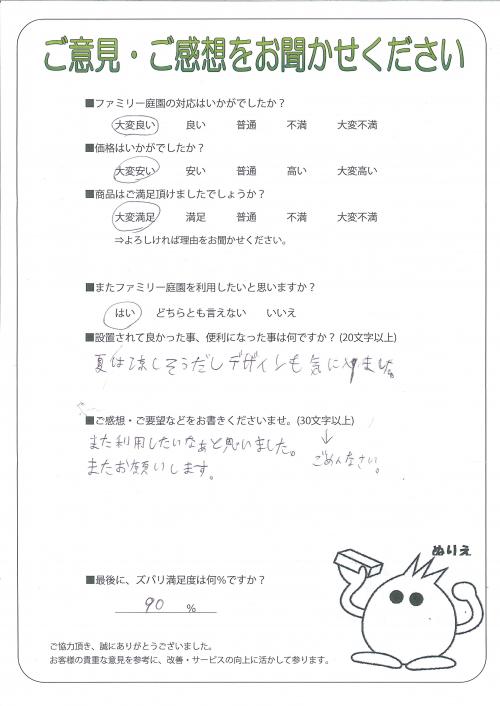 ご意見・ご感想をお聞かせください
■ファミリー庭園の対応はいかがでしたか？
大変良い 良い 普通 不満 大変不満
■価格はいかがでしたか？
大変安い 安い 普通 高い 大変高い
■商品はご満足頂けましたでしょうか？
大変満足 満足 普通 不満 大変不満
⇒よろしければ理由をお聞かせください。
■またファミリー庭園を利用したいと思いますか？
はい どちらとも言えない いいえ
■設置されて良かった事、便利になった事は何ですか？(20文字以上)
夏は涼しそうだしデザインも気に入りました。
■ご感想・ご要望などをお書きくださいませ。(30文字以上)
また利用したいなぁと思いました。 ↓
またお願いします。 ごめんなさい。
ぬりえ
■最後に、ズバリ満足度は何％ですか？
90 ％
ご協力頂き、誠にありがとうございました。
お客様の貴重な意見を参考に、改善・サービスの向上に活かして参ります。